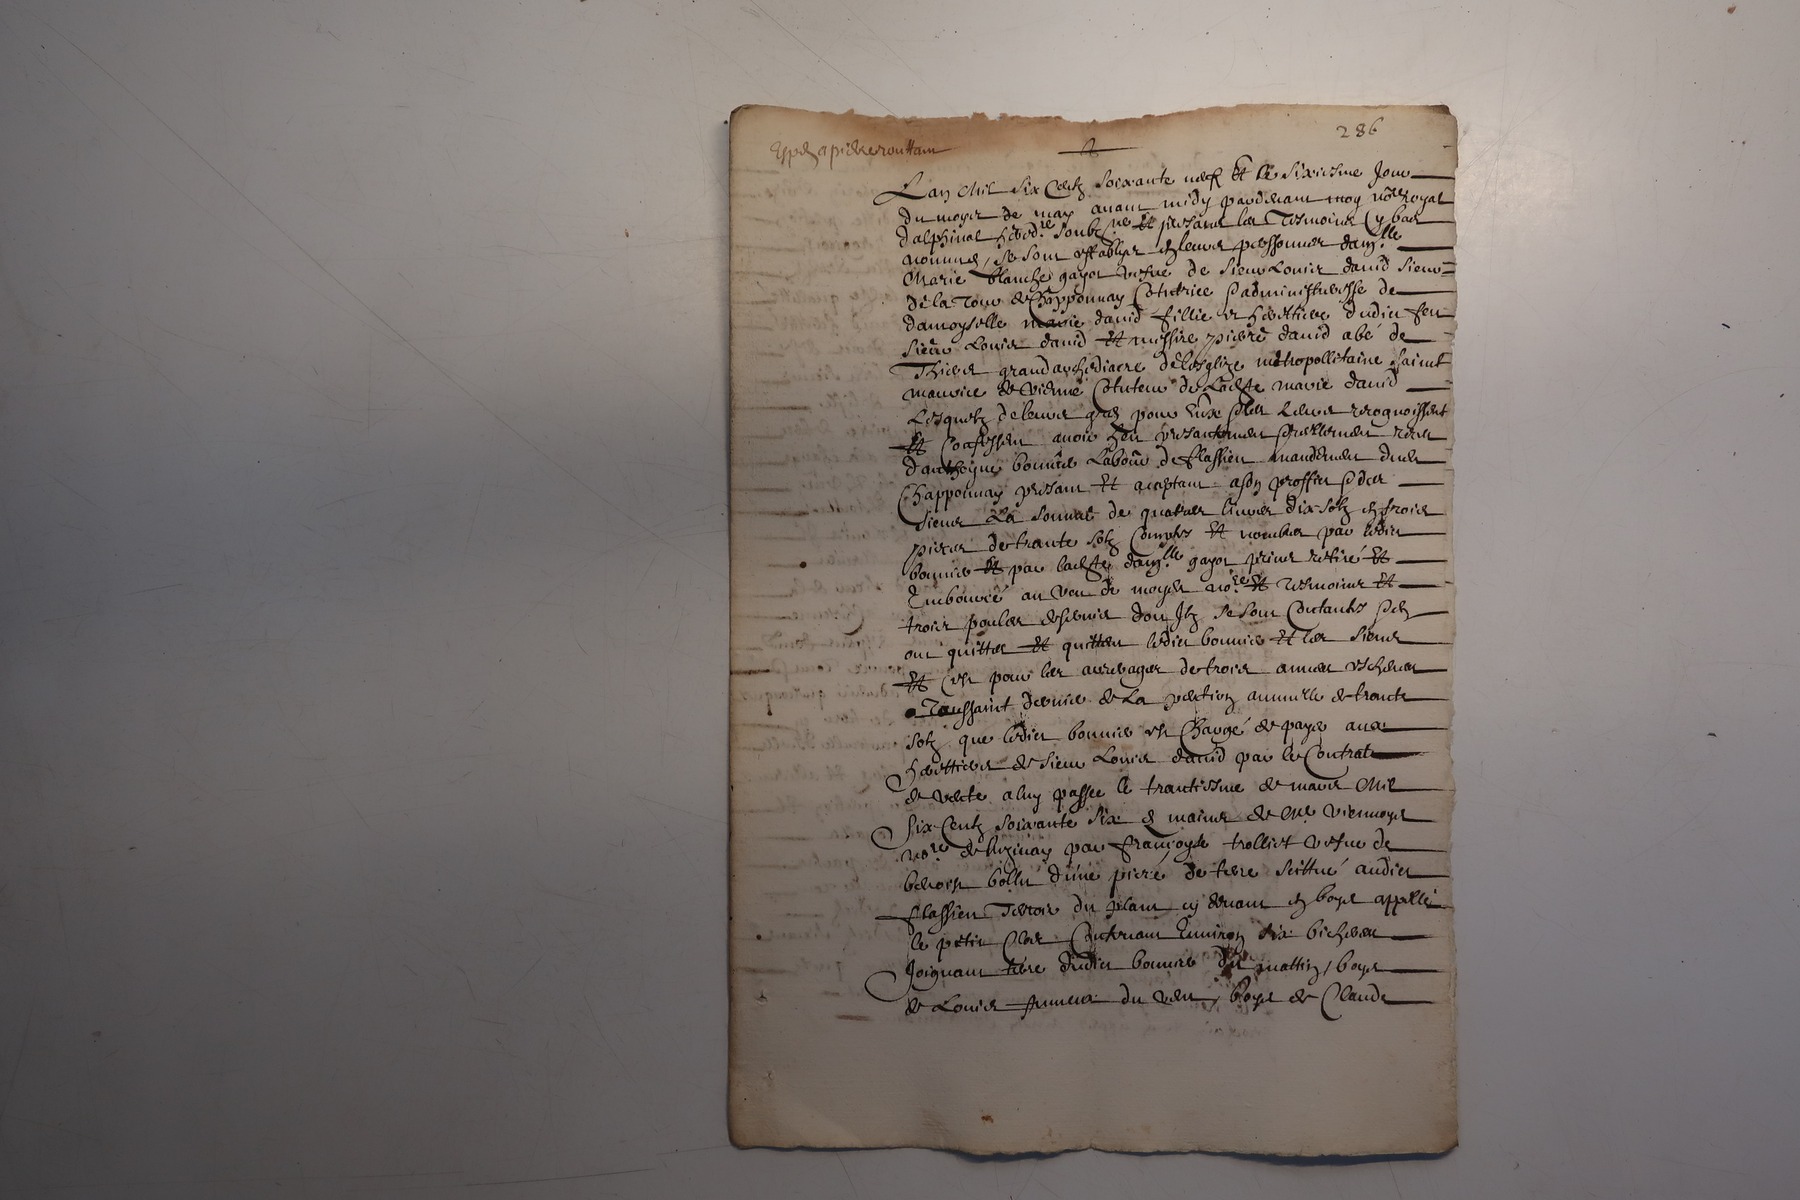 286
Lan mil six centz soixante neuf et le sixiesme Jour
du moys de may avant midy pardevant moy no.re royal
dalphinal hered.re soubz.ne et presant les tesmoins cy bas
nommes, se sont establyes en leurs personnes dam.lle
Marie blanche gayot vefve de sieur Louis david sieur
de la Tour de Chapponnay Cotutrice & administreresse de
damoyselle marie david fillie et heretiere dudict feu
sieur Louis david et messire pierre david abé de
grand archediacre de lesglize metropollitaine saint
maurice de vienne Cotuteur de Ladte marie david
Lesquelz de leurs grés pour Eux & les Leurs recognoissent
et Confessent avoir heu presantement & reellement
d'anthoyne bonnier Labour. de flassieu mandement dudit
Chapponnay presant et aceptant a son proffict & des
siens La somme de quatres livres dix solz en trois
pieces de trante solz Comptes et nombres par ledict
bonnier et par ladte dam.lle gayot prins retiré et
Emboursé au veu de moydt no.re et tesmoins et
trois poules dont Ilz se sont Contantés & en
ont quitter et quittent ledict bonnier et les siens
et Cest pour les arrerages de trois annees escheues
a Toussaint dernier de La pention annuelle de trante
solz que ledict bonnier est Chargé de payer aux
herettiers de sieur Louis david par le Contrat
de vante a luy passee le trantiesme de mars mil
six Centz soixante six es mains de Me viennoys
no.re de par françoyse trolliet vefve de
benoist bollu dune piece de terre scittué audict
flassieu Terroir du plant cy devant en boys appellé
le petit Clos Contenant Environ six bicherees
Joignant terre dudict bonnier du mattin, boys
de Louis du vent, boys de Claude